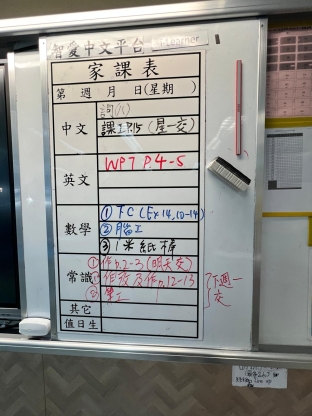 智愛中文平台 i-Learner
家課表
第 週 月 日(星期 )
中文
詞(八)
課工P.15 (星一交)
英文
WP7 P.4-5
數學
① TC (Ex 14, Q1-14)
② 腦工
③ 1米紙條
常識
① 作p.2-3 (明天交)
p.12-13
下週一交
其它
值日生